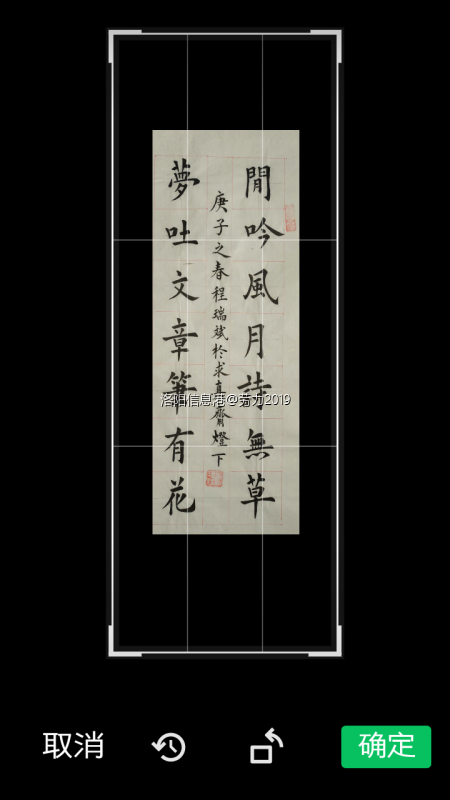 閒吟風月詩無草
庚子之春程瑞斌於求真齋燈下
夢吐文章筆有花
洛阳信息港@劳力2019
取消
确定